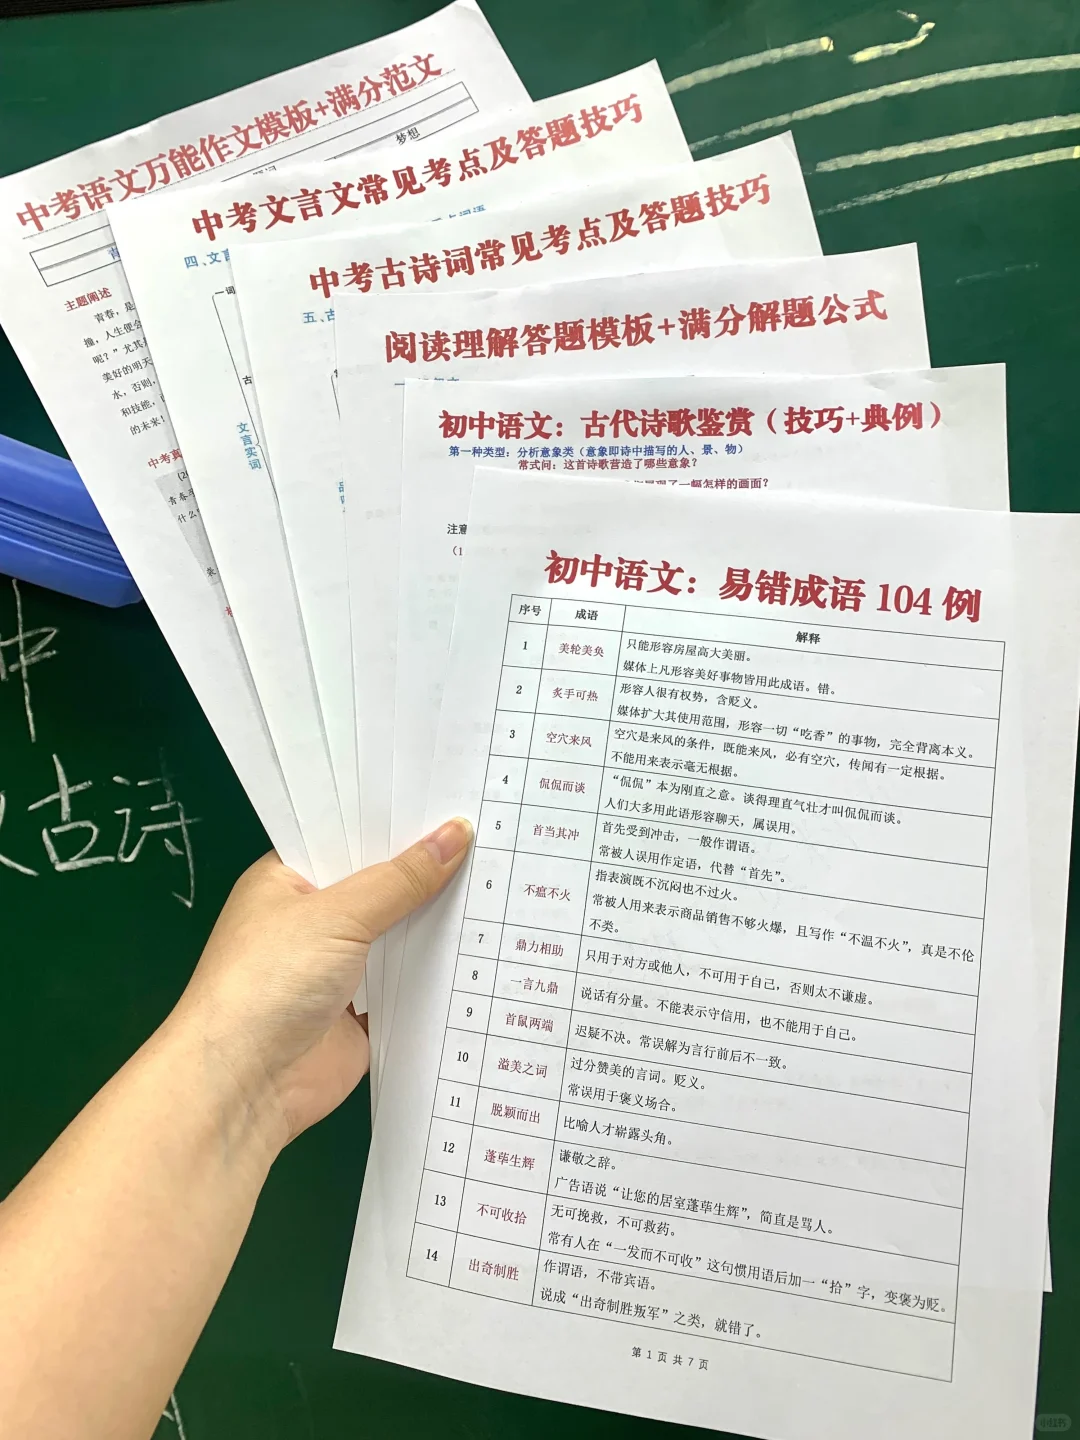 中考语文万能作文模板+满分范文
梦想
主题阐述
青春，是
撞，人生便会
呢？”尤其
美好的明天
水，否则，
和技能，
的未来！
中考真
青春
什么”
中考文言文常见考点及答题技巧
四、文言
文言实词
中考古诗词常见考点及答题技巧
五、古
阅读理解答题模板+满分解题公式
初中语文：古代诗歌鉴赏（技巧+典例）
第一种类型：分析意象类（意象即诗中描写的人、景、物）
常式问：这首诗歌营造了哪些意象？
了一幅怎样的画面？
注意
（1
初中语文：易错成语 104 例
序号 成语 解释
1 美轮美奂 只能形容房屋高大美丽。
媒体上凡形容美好事物皆用此成语。错。
2 炙手可热 形容人很有权势，含贬义。
媒体扩大其使用范围，形容一切“吃香”的事物，完全背离本义。
3 空穴来风 空穴是来风的条件，既能来风，必有空穴，传闻有一定根据。
不能用来表示毫无根据。
4 侃侃而谈 “侃侃”本为刚直之意。谈得理直气壮才叫侃侃而谈。
人们大多用此语形容聊天，属误用。
5 首当其冲 首先受到冲击，一般作谓语。
常被人误用作定语，代替“首先”。
6 不瘟不火 指表演既不沉闷也不过火。
常被人用来表示商品销售不够火爆，且写作“不温不火”，真是不伦
不类。
7 鼎力相助 只用于对方或他人，不可用于自己，否则太不谦虚。
8 一言九鼎 说话有分量。不能表示守信用，也不能用于自己。
9 首鼠两端 迟疑不决。常误解为言行前后不一致。
10 溢美之词 过分赞美的言词。贬义。
常误用于褒义场合。
11 脱颖而出 比喻人才崭露头角。
12 蓬荜生辉 谦敬之辞。
广告语说“让您的居室蓬荜生辉”，简直是骂人。
13 不可收拾 无可挽救，不可救药。
常有人在“一发而不可收”这句惯用语后加一“拾”字，变褒为贬。
14 出奇制胜 作谓语，不带宾语。
说成“出奇制胜叛军”之类，就错了。
第 1 页 共 7 页
中
古诗
小红书